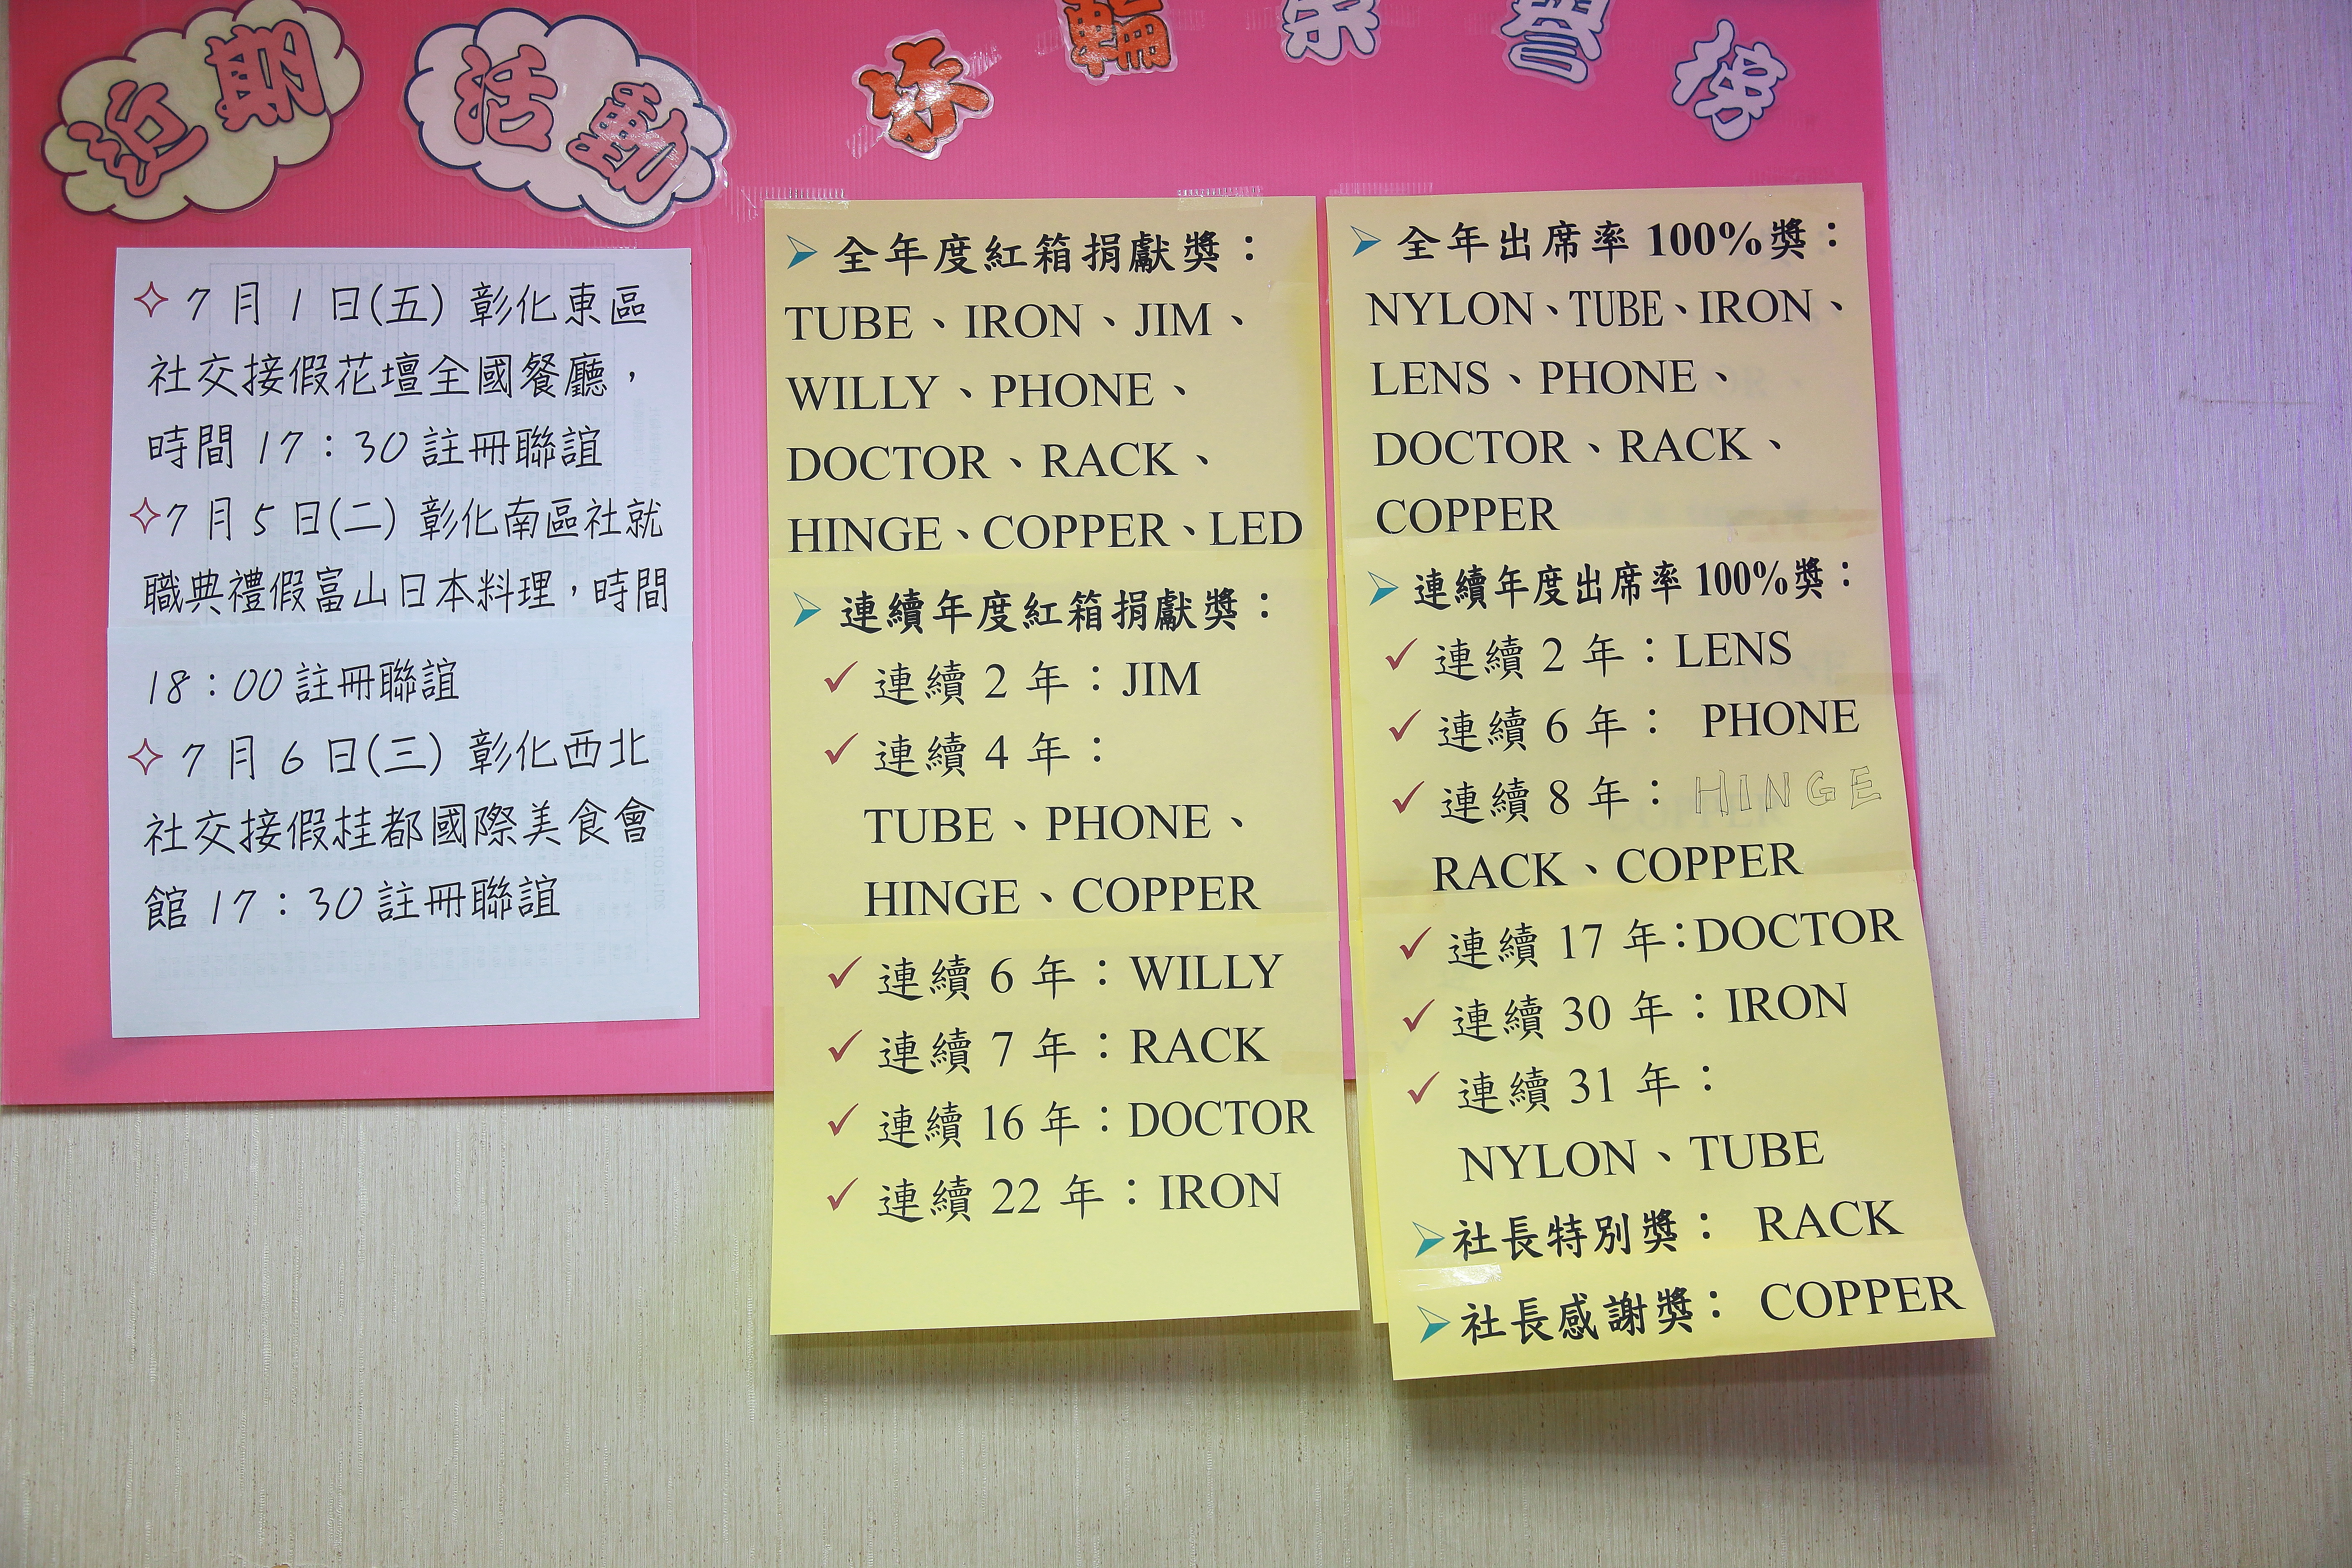 近期 活動
輪 榮 譽 榜
7 月 1 日(五) 彰化東區
社交接假花壇全國餐廳，
時間 17：30 註冊聯誼
7 月 5 日(二) 彰化南區社就
職典禮假富山日本料理，時間
18：00 註冊聯誼
7 月 6 日(三) 彰化西北
社交接假桂都國際美食會
館 17：30 註冊聯誼
全年度紅箱捐獻獎：
TUBE、IRON、JIM、
WILLY、PHONE、
DOCTOR、RACK、
HINGE、COPPER、LED
連續年度紅箱捐獻獎：
連續 2 年：JIM
連續 4 年：
TUBE、PHONE、
HINGE、COPPER
連續 6 年：WILLY
連續 7 年：RACK
連續 16 年：DOCTOR
連續 22 年：IRON
全年出席率 100%獎：
NYLON、TUBE、IRON、
LENS、PHONE、
DOCTOR、RACK、
COPPER
連續年度出席率 100%獎：
連續 2 年：LENS
連續 6 年： PHONE
連續 8 年： HINGE
RACK、COPPER
連續 17 年：DOCTOR
連續 30 年：IRON
連續 31 年：
NYLON、TUBE
社長特別獎： RACK
社長感謝獎： COPPER